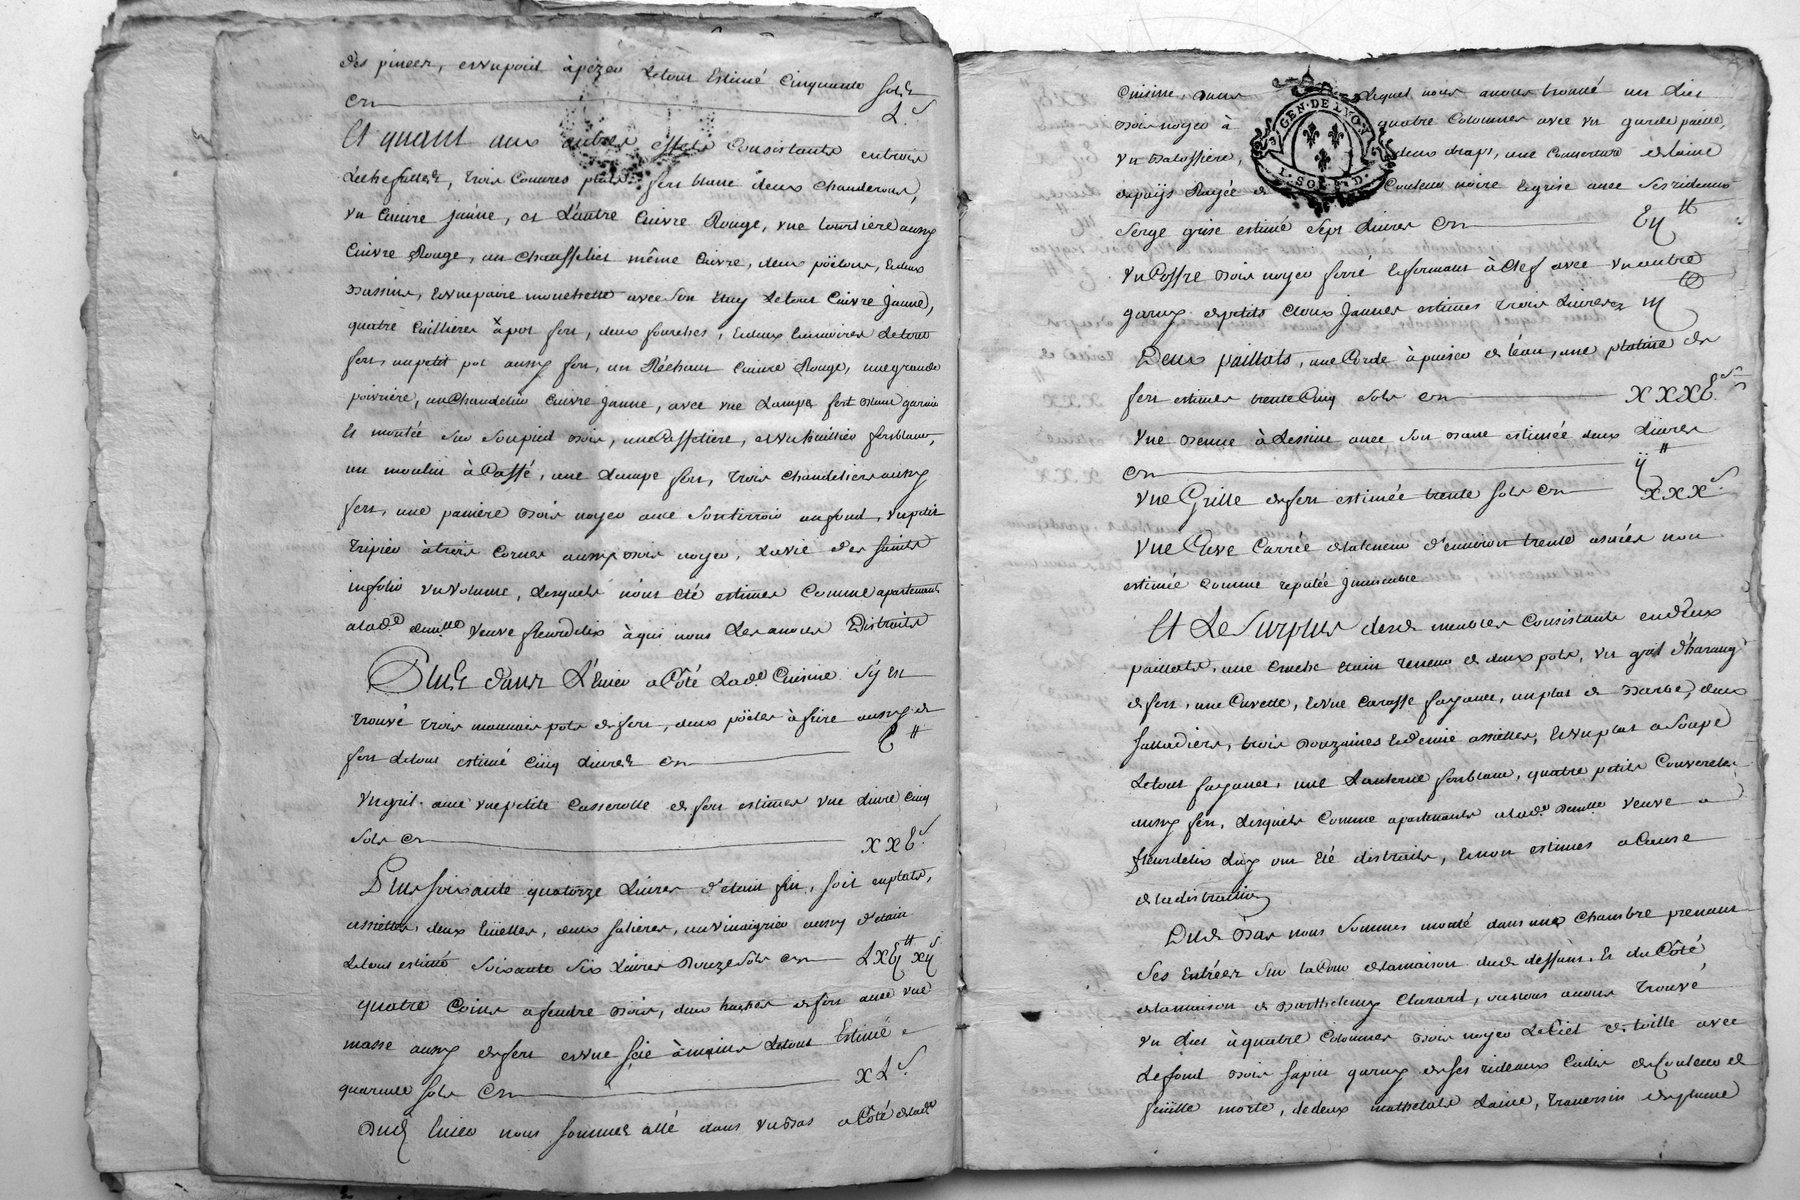 des pinces, et un poid à pezer le tout Estimé Cinquante sols
cy L s
Et quant aux autres effets Consistants en trois
Lechefattes, trois Couvres plats fert blanc deux Chauderons,
un Cuivre jaune, et L'autre Cuivre Rouge, une tourtiere aussy
Cuivre Rouge, un Chauffelict même Cuivre, deux poëlons, Et deux
Bassins, Et une paire mouchette avec son Etuy Le tout Cuivre jaune,
quatre Cuillieres à pot fert, deux fourches, Et deux Cremoires Le tout
fert, un petit pot aussy fert, un Réchaut Cuivre Rouge, une grande
poivrière, un Chandelier Cuivre jaune, avec une Lampe fert blanc garnie
Et montée sur son pied bois, une Caffetiere, et un huillier ferblanc,
un moulin à Caffé, une Lampe fert, trois Chandeliers aussy
fert, une panière bois noyer avec son tirroir au fond, un petit
tripier à trois Cornes aussy bois noyer, La vie des saints
in folio un volume, Lesquels n'ont été estimés Comme apartenants
a lad.e demlle veuve fleurdelix à qui nous Les avons Distraits
Plus dans L'Evier a Côté Lad.e Cuisine s'y est
trouvé trois mauvais pots de fert, deux poëles à frire aussy de
fert Le tout estimé Cinq Livres cy v ₶
Un gril avec une petite Casserolle de fert estimés une Livre Cinq
sols cy xxv s
Plus soixante quatorze Livres d'étain fin, soit en plats,
assiettes, deux Ecuelles, deux salieres, un vinaigrier aussy d'étain
Le tout estimé soixante six Livres Douze sols cy Lxvj ₶ xij s
quatre Coins a fendre bois, deux haches de fert avec une
masse aussy de fert et une scie à mains Le tout Estimé
quarante sols cy xL s
Dud. Evier nous sommes allé dans un Bas a Côté de lad.e
Cuisine, Dans Lequel nous avons trouvé un Lict
bois noyer à quatre Colonnes avec un garde paille,
un Balossiere, deux draps, une Couverture de laine
de païs Rayée de Couleur noire Et grise avec ses rideaux
serge grise estimé sept Livres cy vij ₶
Un Coffre bois noyer ferré Et fermant à Clef avec un autre
garny de petits Cloux jaunes estimés trois Livres cy iij ₶
Deux paillats, une Corde à puiser de l'eau, une platine de
fert estimés trente Cinq sols cy xxxv s
Une Benne à Lessive avec son banc estimée deux Livres
cy ij ₶
Une Grille de fert estimée trente sols cy xxx s
Une Cuve Carrée de la teneur d'environ trente asnées non
estimée Comme reputée immeuble
Et Le Surplus desd. meubles Consistants en deux
paillats, une cruche étain teneur de deux pots, un gril d'harang
de fert, une Cuvette, Et une Caraffe fayance, un plat de Barbe, deux
salladiers, trois Douzaines Et demie assiettes, Et un plat a soupe
Le tout fayance, une Lanterne ferblanc, quatre petits Couvercles
aussy fert, Lesquels Comme apartenants a lad.e Demlle veuve
fleurdelix Luy ont Eté distraits, Et non estimés a Cause
de la distraction
Dud. Bas nous sommes monté dans une Chambre prenant
ses Entrées sur la Cour de la maison dud. deffunt Et du Côté
de la maison de Barthelemy Clavard, ou nous avons trouvé
un Lict à quatre Colonnes bois noyer Le Ciel de toille avec
Le fond bois sapin garny de ses rideaux Cadis de Couleur de
feüille morte, de deux mathelats Laine, traversin de plume
GEN. DE LYON
1. SOL. 4. D.